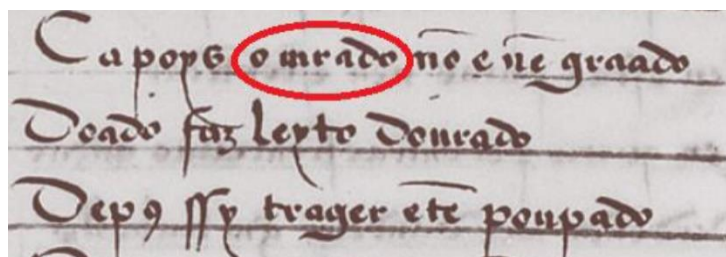 Ca poys o mrado nō e nē graado
Doado faz leyto dourado
Dep9 ssy trager etē poupado